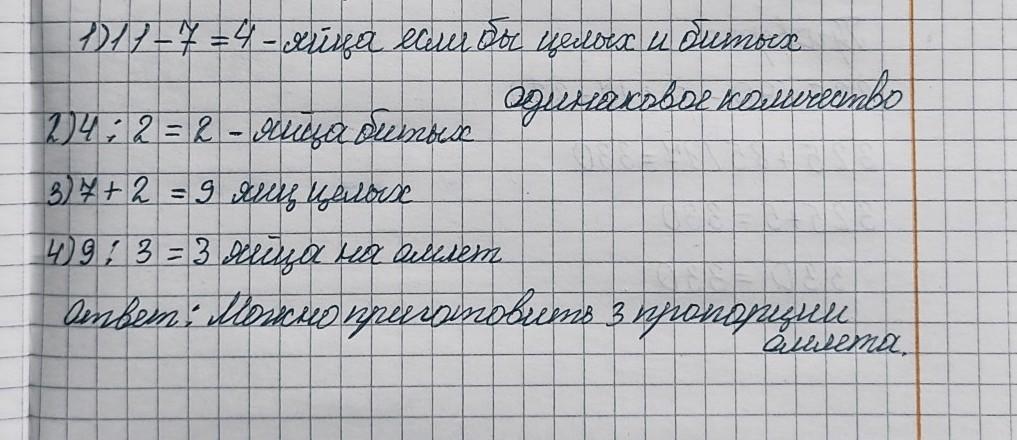 1) 11 - 7 = 4 - яйца если бы целых и битых
одинаковое количество
2) 4 : 2 = 2 - яйца битых
3) 7 + 2 = 9 яиц целых
4) 9 : 3 = 3 яйца на омлет
Ответ: Можно приготовить 3 пропорции
омлета.